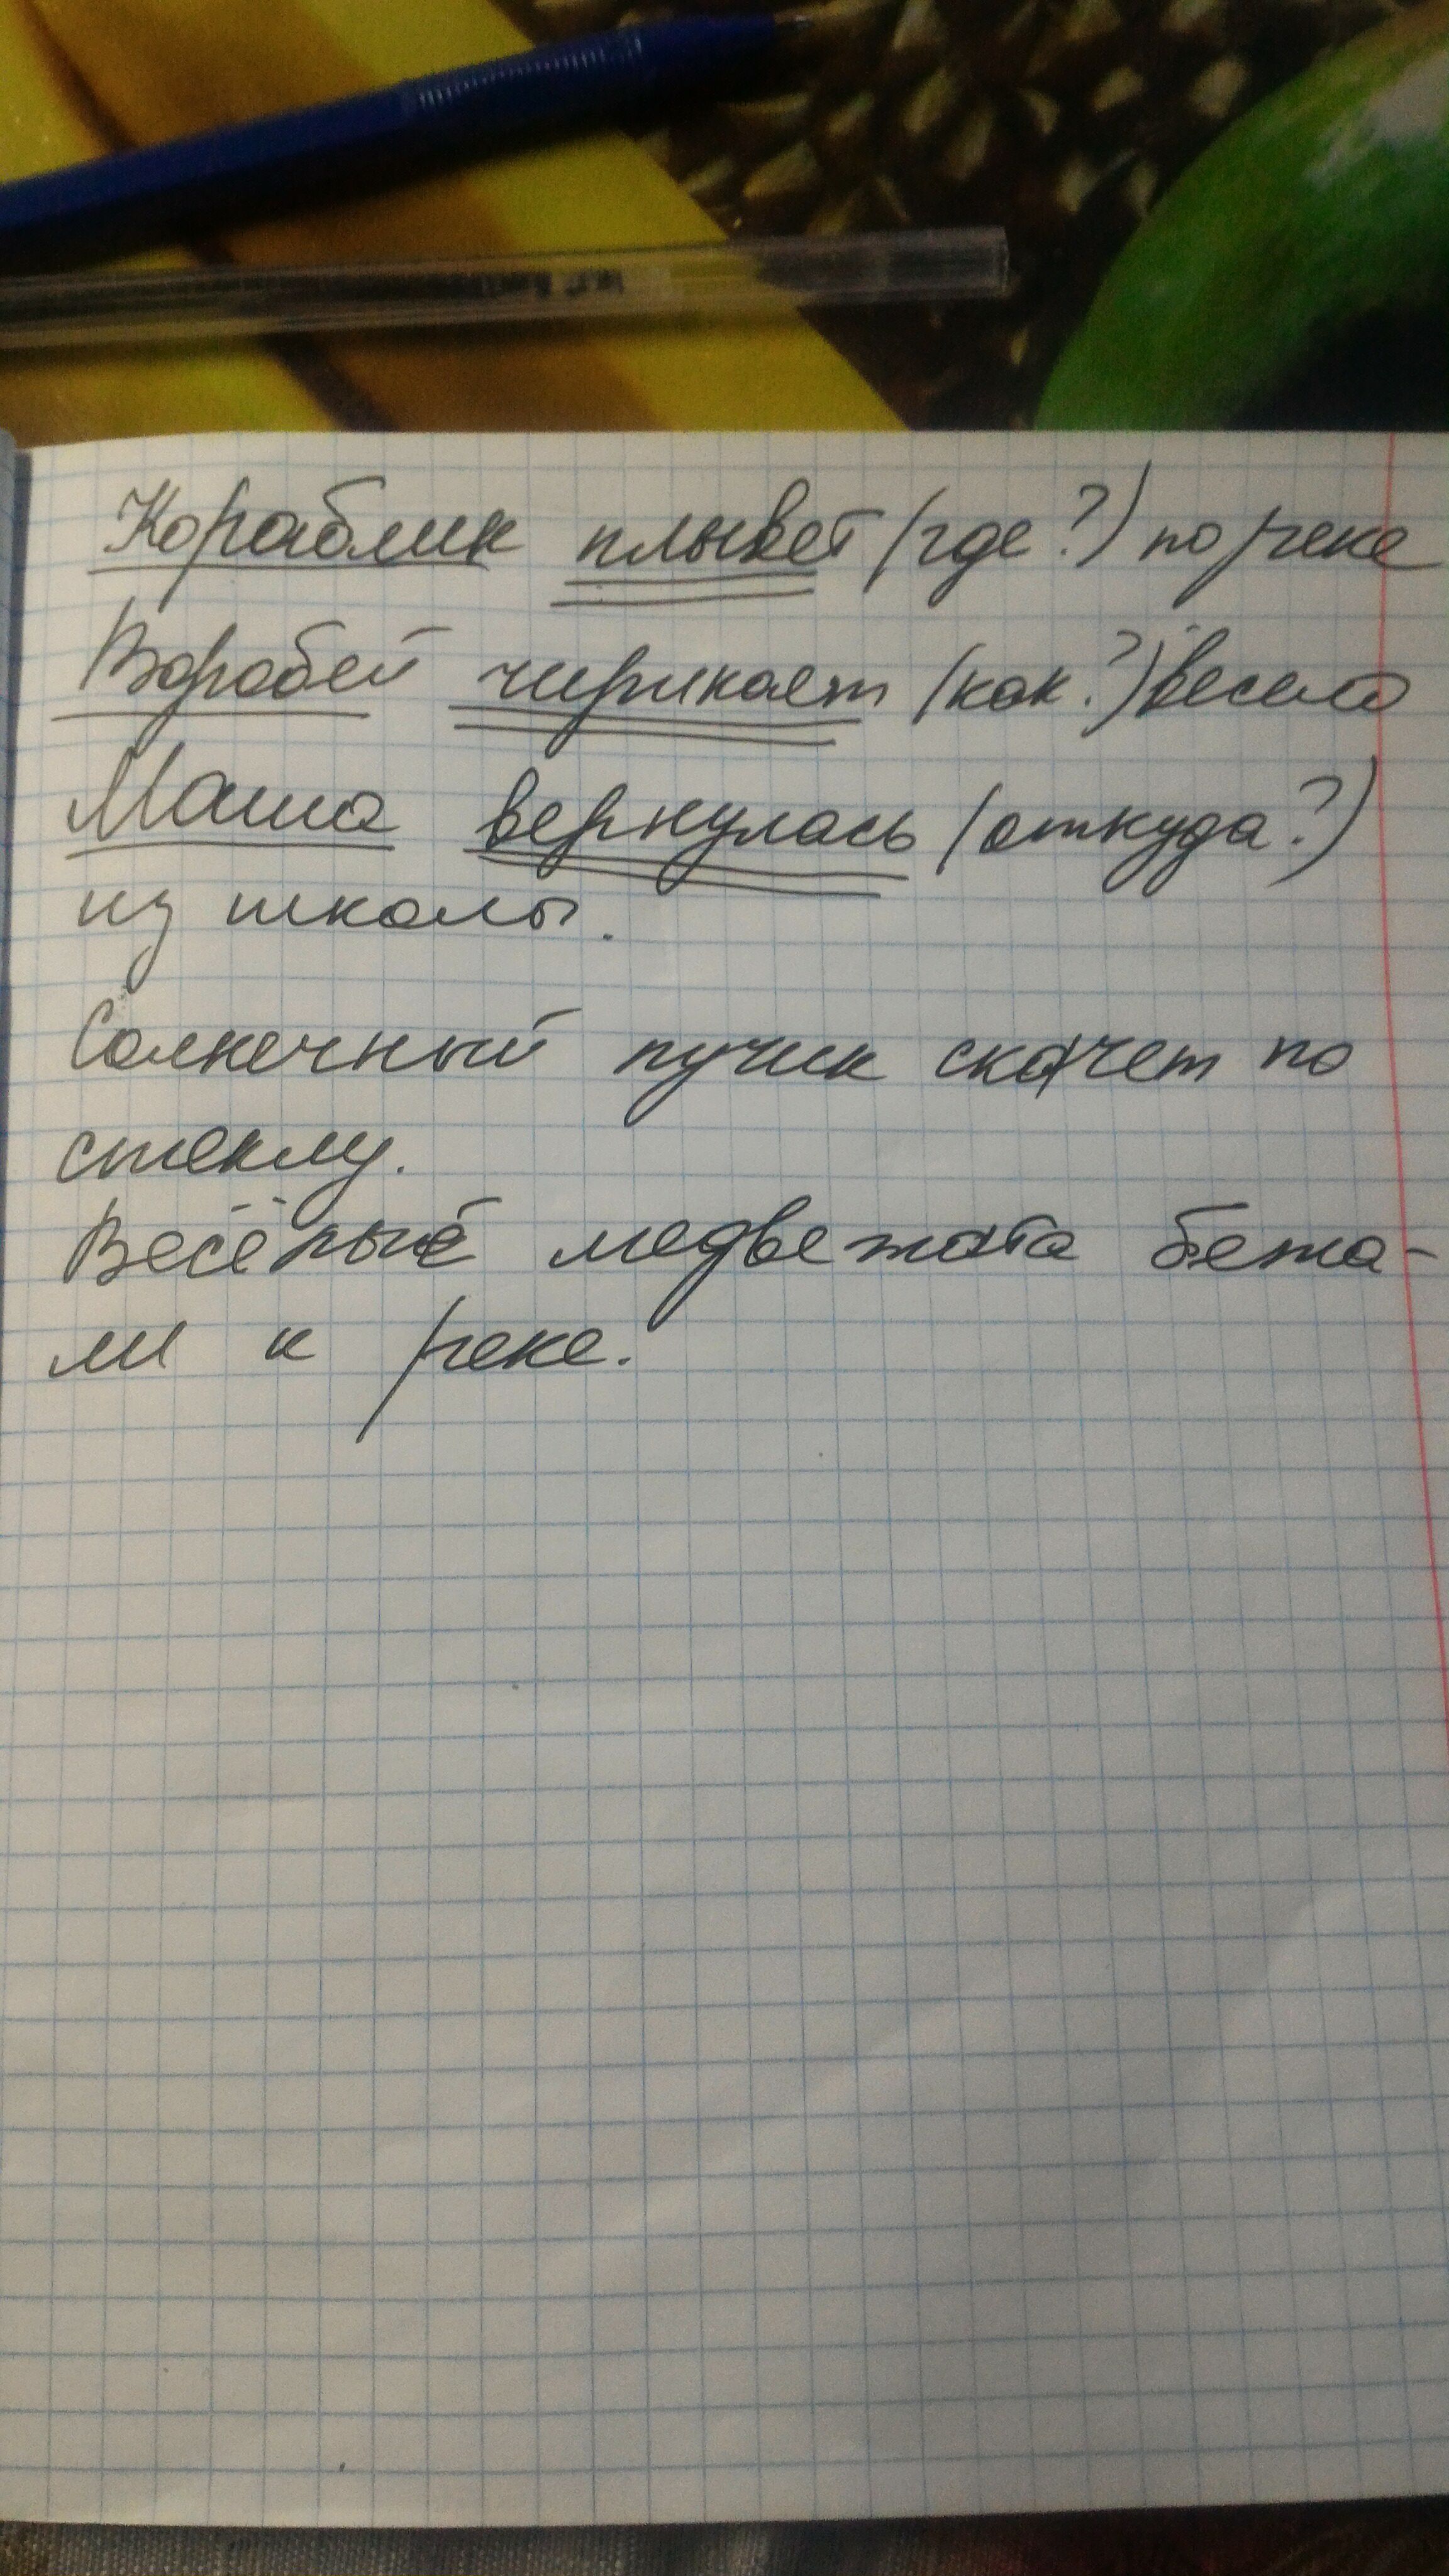 Кораблик плывет (где?) по реке
Воробей чирикает (как?) весело
Маша вернулась (откуда?)
из школы.
Солнечный лучик скачет по
стеклу.
Весёлые медвежата бежа-
ли к реке.